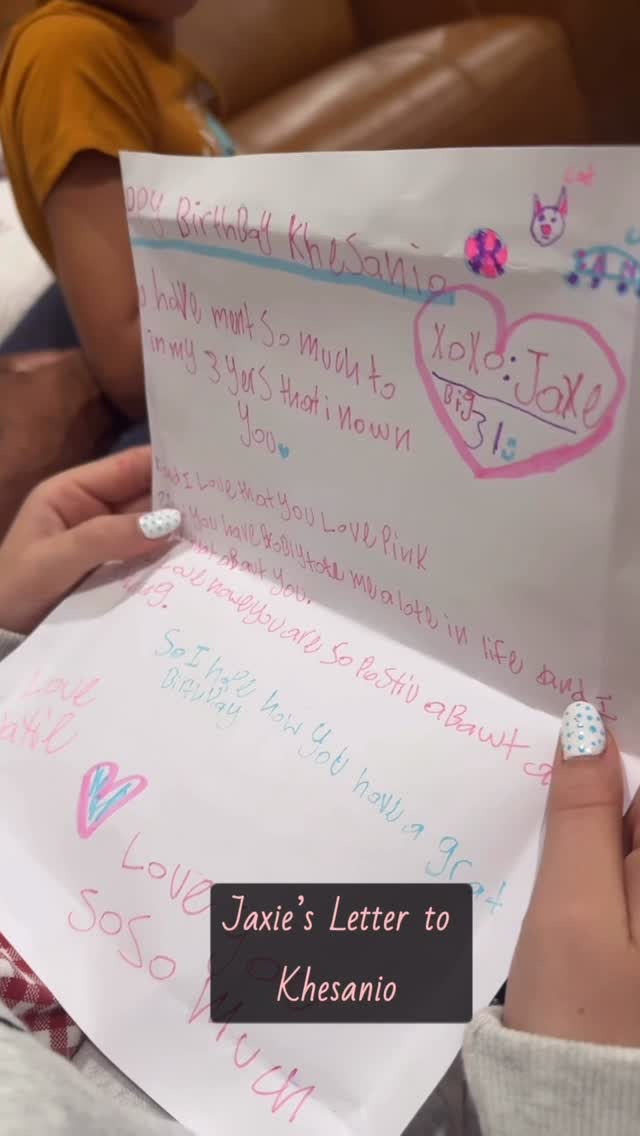 ppy BirthDay KheSanio
Cat
xoxo: Jaxe
Big
31
have ment So much to
in my 3 yers that i nown
you
I Love that You Love Pink
You have me a lote in life and I
about you.
Love howe you are So Postiv aBawt
So I hope how you have a grat
BirthDay
Love
Love you
SoSo Much
Jaxie's Letter to
Khesanio